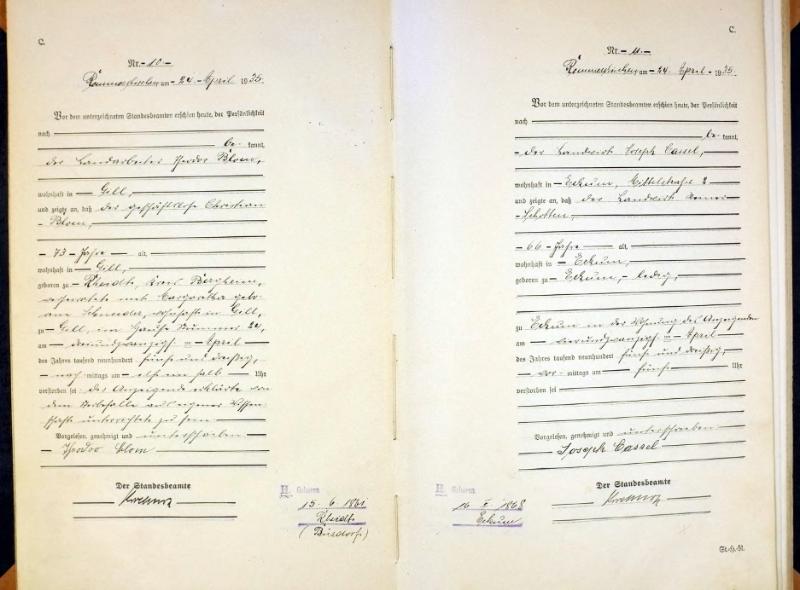 C.
Nr. 10
Rommerskirchen am 24. April 1935.
Vor dem unterzeichneten Standesbeamten erschien heute, der Persönlichkeit
nach
be kannt,
der Landarbeiter Theodor Blom,
wohnhaft in Gill,
und zeigte an, daß der geschäftslose Christian
Blom,
73 Jahre alt,
wohnhaft in Gill,
geboren zu Rheidt, Kreis Bergheim,
verheiratet mit Margaretha gebo-
rene Schneider, wohnhaft in Gill,
zu Gill, im Hause Nummer 24,
am dreiundzwanzigsten April
des Jahres tausend neunhundert fünf und dreißig,
nach mittags um elf ein halb Uhr
verstorben sei. Der Anzeigende erklärte von
dem Sterbefalle aus eigener Wissen-
schaft unterrichtet zu sein
Vorgelesen, genehmigt und unterschrieben
Theodor Blom
Der Standesbeamte
H. Geboren
15. 6. 1861
Rheidt
(Büsdorf)
C.
Nr. 11.
Rommerskirchen am 24 April 1935.
Vor dem unterzeichneten Standesbeamten erschien heute, der Persönlichkeit
nach
be kannt,
der Landwirt Joseph Cassel,
wohnhaft in Eckum, Mittelstraße 2
und zeigte an, daß der Landwirt
Schotten,
66 Jahre alt,
wohnhaft in Eckum,
geboren zu Eckum, ledig,
zu Eckum in der Wohnung des Anzeigenden
am vierundzwanzigsten April
des Jahres tausend neunhundert fünf und dreißig,
vor mittags um fünf Uhr
verstorben sei
Vorgelesen, genehmigt und unterschrieben
Joseph Cassel
Der Standesbeamte
H. Geboren
1868
Eckum
St.-H.-R.